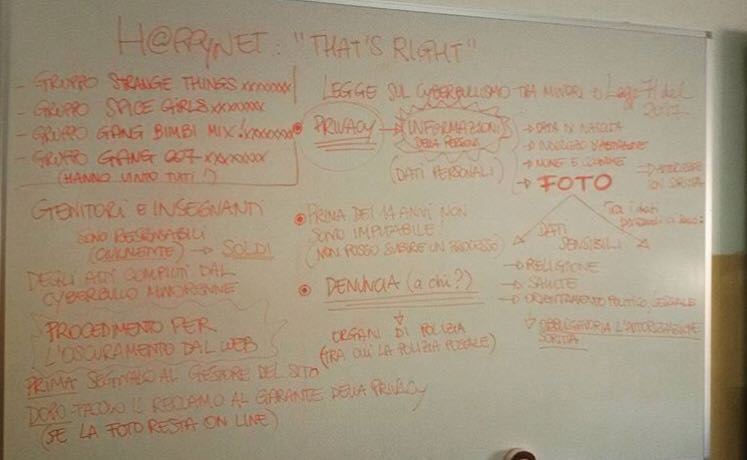 H@PPYNET: "THAT'S RIGHT"
- GRUPPO STRANGE THINGS xxxxxxx
- GRUPPO SPICE GIRLS xxxxxxx
- GRUPPO GANG BIMBI MIX! xxxxxxx
- GRUPPO GANG 007 xxxxxxx
(HANNO VINTO TUTTI!)
LEGGE SUL CYBERBULLISMO TRA MINORI → Legge 71 del 2017
PRIVACY → INFORMAZIONI
DELLA PERSONA
(DATI PERSONALI)
→ DATA DI NASCITA
→ INDIRIZZO D'ABITAZIONE
→ NOME E COGNOME
→ FOTO
Tra i dati
DATI
SENSIBILI
→ RELIGIONE
→ SALUTE
→ ORIENTAMENTO POLITICO, SESSUALE
↓ OBBLIGATORIA L'AUTORIZZAZIONE
SCRITTA
GENITORI E INSEGNANTI
SONO RESPONSABILI
(CIVILMENTE) → SOLDI
DEGLI ATTI COMPIUTI DAL
CYBERBULLO MINORENNE
PRIMA DEI 14 ANNI NON
SONO IMPUTABILE!
(NON POSSO SUBIRE UN PROCESSO)
DENUNCIA (a chi?)
↓
ORGANI DI POLIZIA
(TRA CUI LA POLIZIA POSTALE)
PROCEDIMENTO PER
L'OSCURAMENTO DAL WEB
PRIMA SEGNALO AL GESTORE DEL SITO
DOPO FACCIO IL RECLAMO AL GARANTE DELLA PRIVACY
(SE LA FOTO RESTA ON LINE)